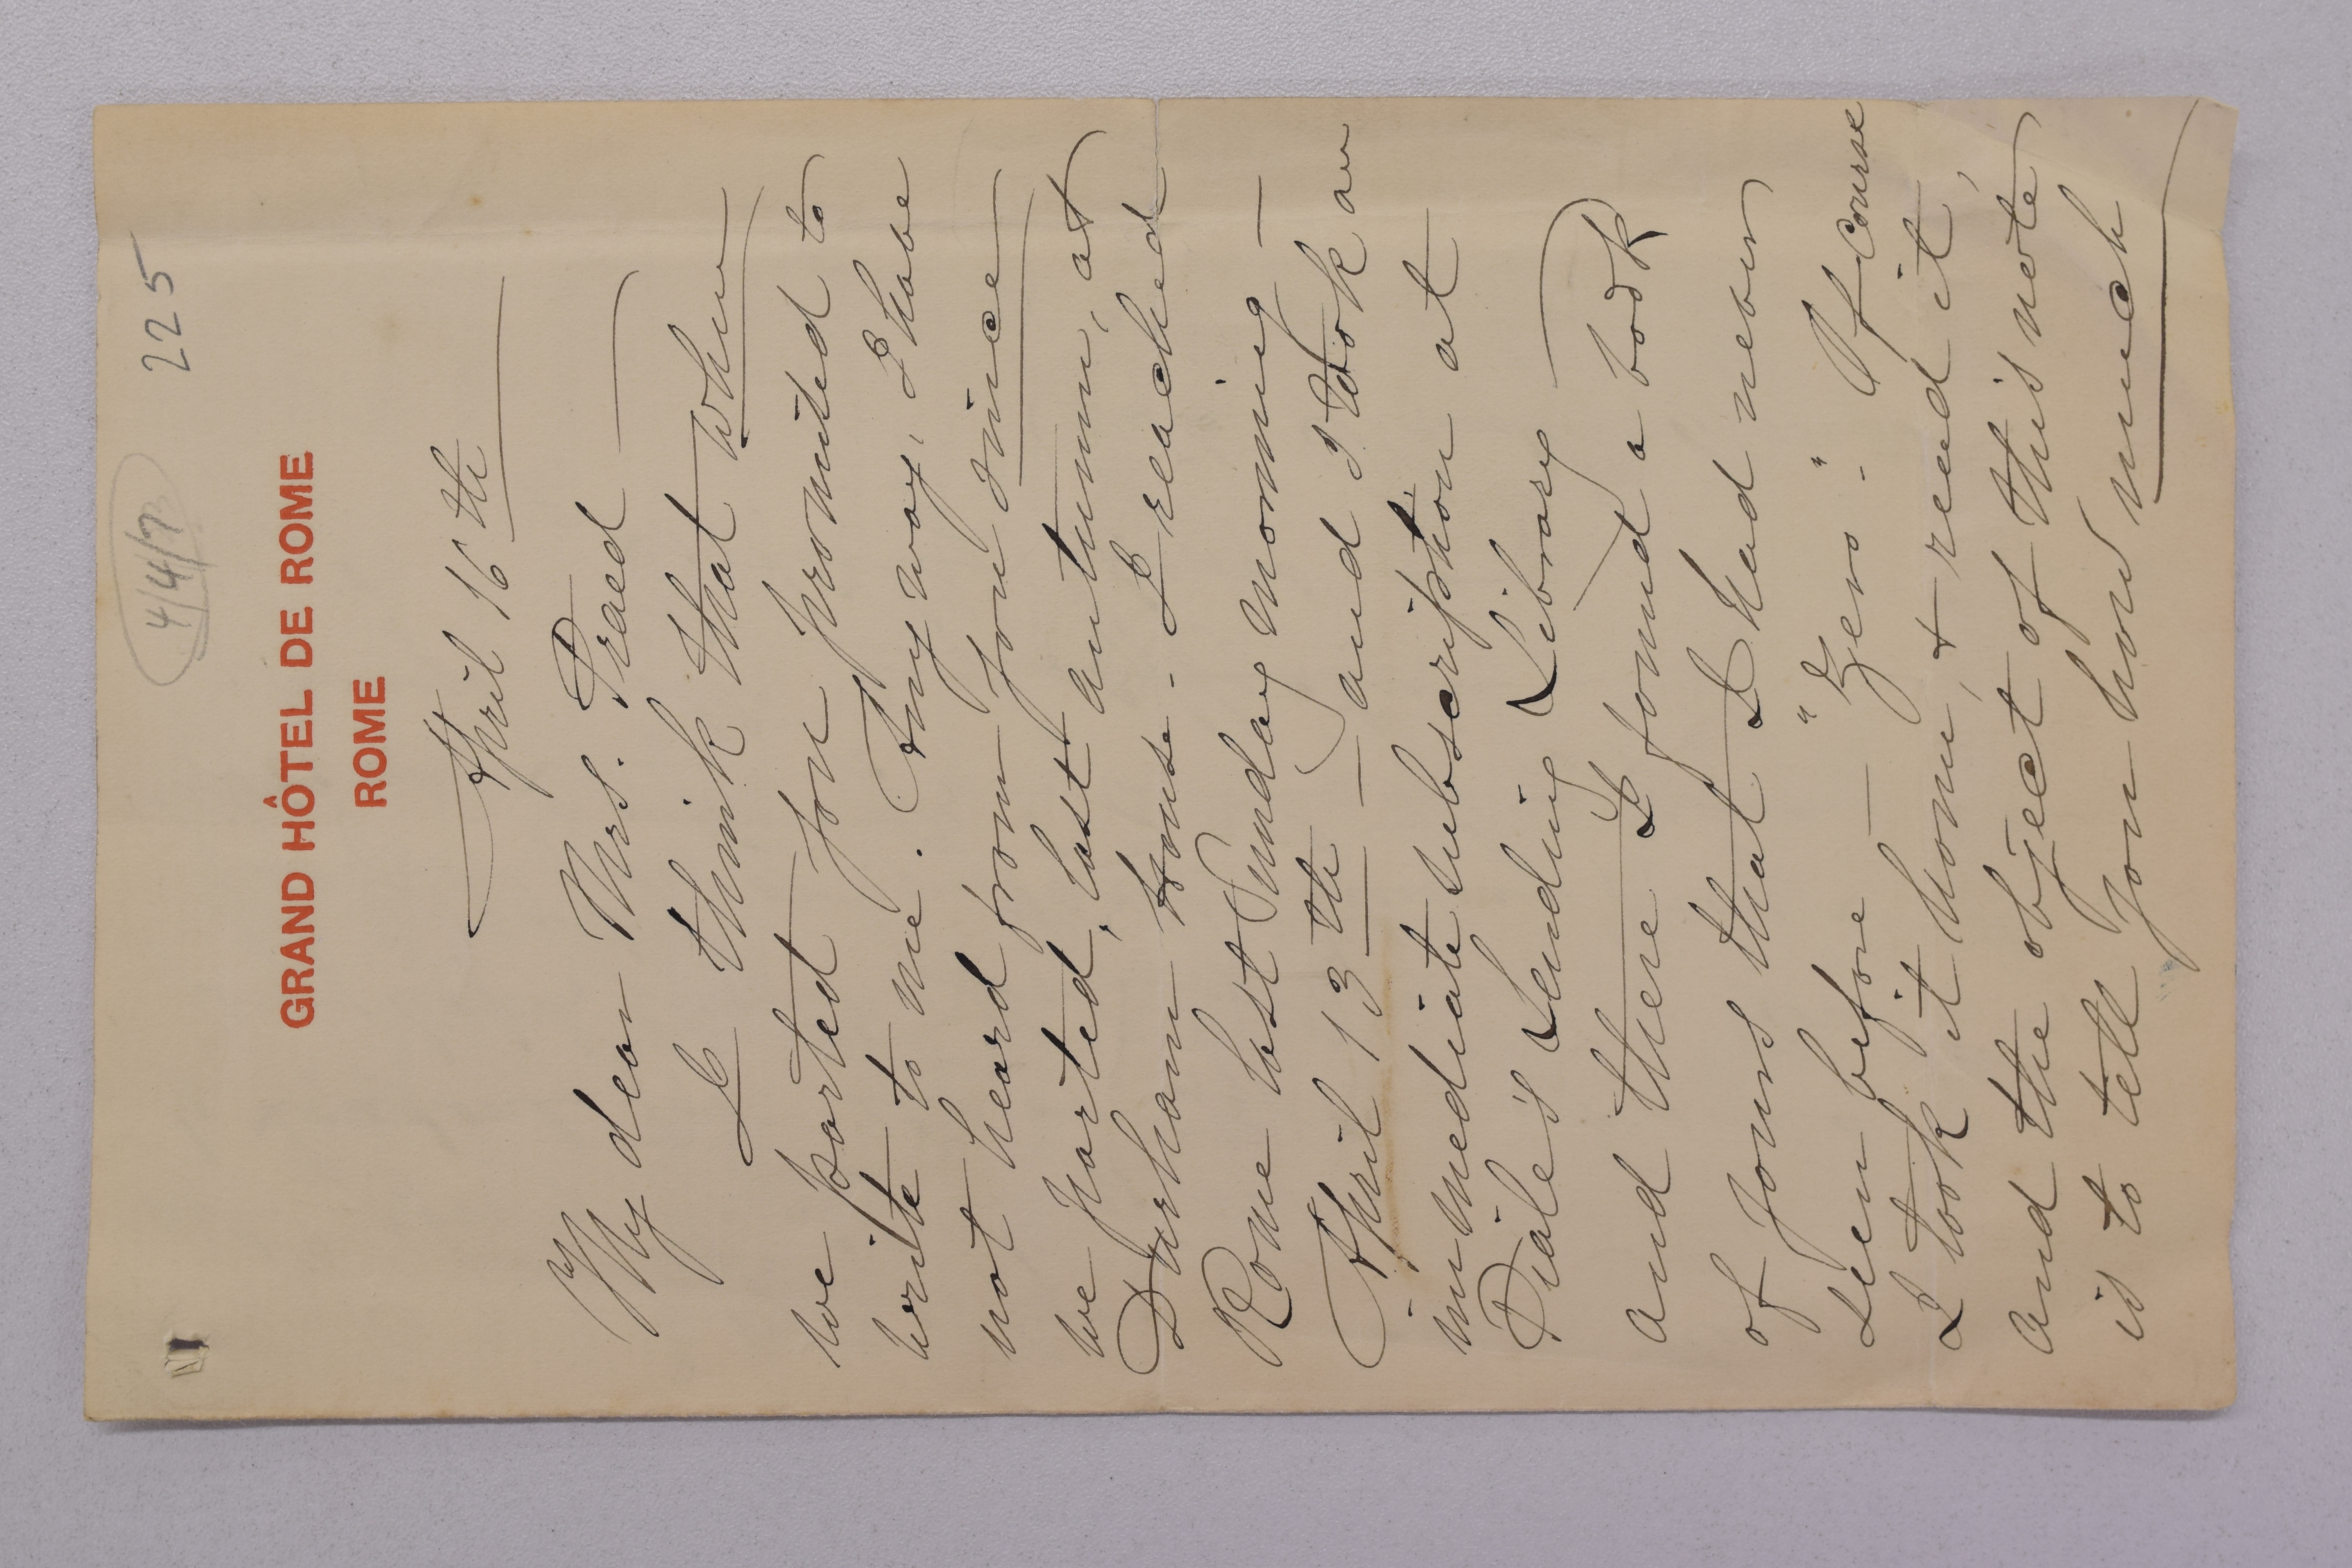 4/4/7 225
GRAND HÔTEL DE ROME
ROME
April 16 th
My dear Mrs. Praed
I think that when
we parted you promised to
write to me. Any way, I have
not heard from you since
we parted, last autumn, at
Durham House - I reached
Rome last Sunday morning -
April 13 th - and I took an
immediate subscription at
Piale's Lending Library
and there I found a book
of yours that I had never
seen before - "Zero". Of course
I took it home, & read it,
and the object of this note
is to tell you how much